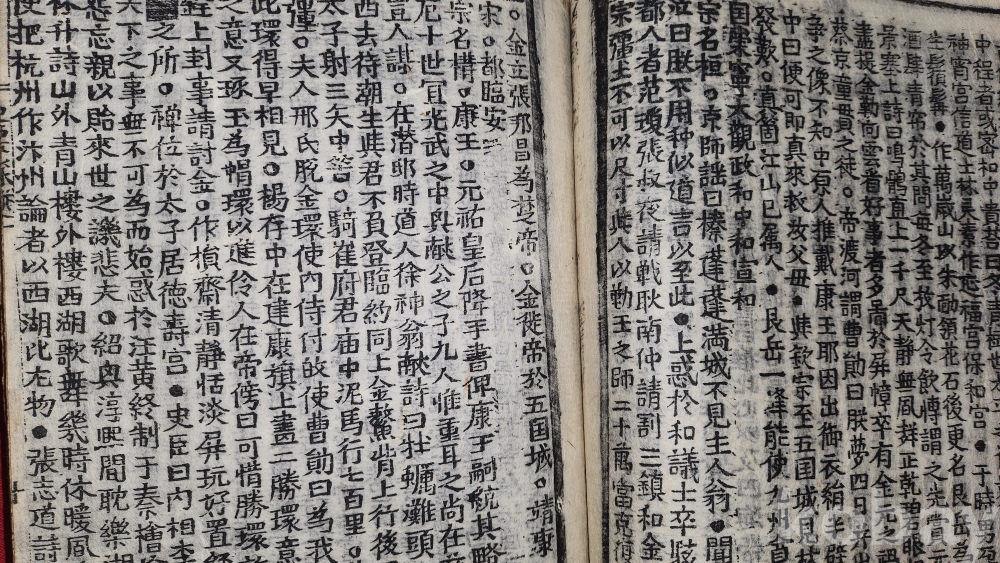 神霄宮信道士林灵素作愈福宮保和宮●于時男
生髭鬚●作萬歲山以朱勔領花石後更名艮岳為
酒肆青帘於其間每冬至放灯令飲博謂之先賞元
景塞上詩曰鳴鶻直上一千尺天靜無風聲正乾碧眼
盡提金勒向雲看好事者多畵於屏幛卒有金元之禍
蔡京童貫之徒。帝渡河謂曹勛曰朕夢四日並出
爭之像不知中原人推戴康王耶因出御衣絹半臂
中曰便可即真來救汝父母●與欽宗至五国城見
發歎。真箇江山已属人●艮岳一峰能使九州
国崇寧大觀政和中和宣和
宗名桓。京師謠曰榛蓬蓬滿城不見主人翁●聞
泣曰朕不用种似道言以至此●上惑於和議士卒
都人者范瓊張叔夜請戰耿南仲請割三鎮和金
土不可以尺寸與人以勤王之師二十萬當克復
。金立張邦昌為楚帝。金徙帝於五国城。靖康
宋。都臨安
宗名構。康王。元祐皇后降手書俾康王嗣統其略
厄十世宜光武之中興献公之子九人惟重耳之尚在
宜人謀。在潜邸時道人徐神翁献詩曰牡蠣灘頭
西去待潮生與君不負登臨約同上金鰲背上行後
太子射三矢中筈。騎崔府君庙中泥馬行七百里。
彊。夫人邢氏脫金環使內侍付故使曹勛曰為我
此環得早相見。楊存中在建康旗上畵二勝環意
之意又琢玉為帽環以進伶人在帝傍曰可惜勝環
上封事請討金。作損齋清靜恬淡屏玩好置
之所。禪位於太子居德壽宮●史臣曰內相李
天下之事無不可為而始惑於汪黃終制于秦檜
忘親以貽來世之譏悲夫。紹興淳熙間耽樂湖
林升詩山外青山樓外樓西湖歌舞幾時休暖風
使把杭州作汴州論者以西湖比尤物●張志道詩